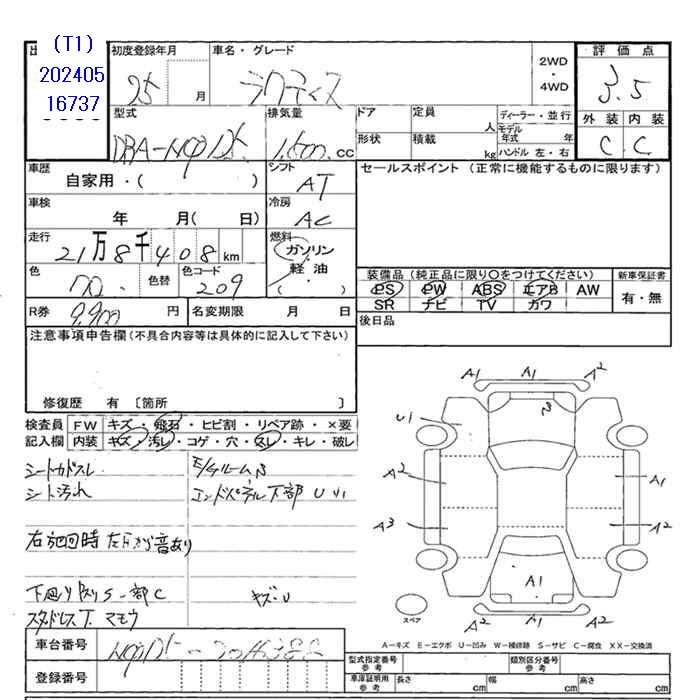 (T1)
202405
16737
初度登録年月
25 月
車名・グレード
ラクティス
2WD
・
4WD
評価点
3.5
外装 内装
C C
型式
排気量
1,500 CC
ドア
形状
定員 人
積載 kg
ディーラー・並行
モデル年式 年
ハンドル 左・右
車歴
自家用・( )
シフト
AT
セールスポイント (正常に機能するものに限ります)
車検
年 月( 日)
冷房
AC
走行
21万8千408km
燃料
ガソリン
軽油
( )
色
色替
色コード
209
装備品(純正品に限り○をつけてください)
PS PW ABS エアB AW
SR ナビ TV カワ
新車保証書
有・無
R券
9,900 円
名変期限 月 日
後日品
注意事項申告欄(不具合内容等は具体的に記入して下さい)
修復歴 有 〔箇所 〕
検査員
記入欄
FW キズ・飛石・ヒビ割・リペア跡・×要
内装 キズ・汚レ・コゲ・穴・スレ・キレ・破レ
シート汚れ
エンドパネル下部 U
音あり
キズ・U
スタッドレスT. マモウ
A1 A1 A2
U1
A2 A1
A3 A2
A1
A2 A1 A2
スペア
A-キズ E-エクボ U-凹み W-補修跡 S-サビ C-腐食 XX-交換済
車台番号
登録番号
型式指定番号
参考
類別区分番号
参考
車庫証明用
参考
長さ cm
幅 cm
高さ cm